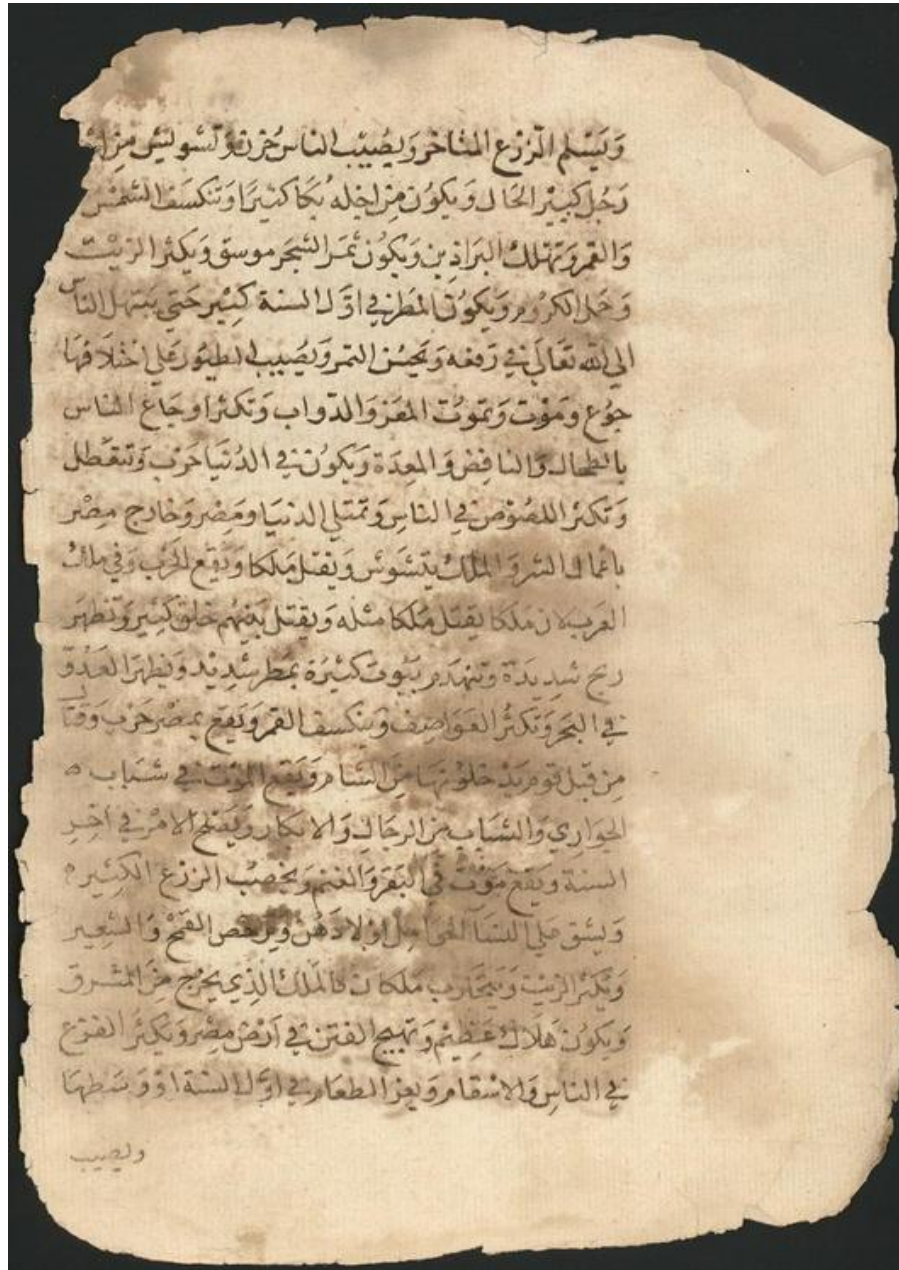 وَيَسْلم الزرْع المتاخر وَيصُيبْ الناس حُزن وَتشويش مِن
رَجُل كبيْر الحَال وَيكوُن مِن اجله بُكا كثيرًا وَتنكسَف الشمْس
وَالقمر وَتهْلك البرَاذِين وَيكوُن ثمر الشجَر موسق وَيكثر الزيْت
وَحمل الكروُم وَيكوُن المطر في اوَّل السنة كبيْر حَتي يبتهل الناس
الي الله تعَالَي في رَفعه وَيحسُن التمر وَيصُيب الطيوُر علي اختلافهَا
جوُع وموْت وَتموُت المعَز وَالدّواب وَتكثر اوجَاع الناس
بالطحال وَالنافِض وَالمعِدَة وَيكوُن في الدُنيَا حَرْب
وَتكثر اللصُوْص في الناسِ وَتمتلي الدنيَا ومَصْر وَخارج مصْر
باعمال الشر وَالملكُ يتشوَش وَيقتل مَلكا وَيقع الحَرْب وَفي ملك
العَرب لان مَلكا يقتل مَلكا مثله وَيقتل بَينهُم خلق كبيْر وَتظهَر
ريح شديدَة وَتنهدم بيُوت كثيْرَة بمَطر شديْد وَيظهرَ العَدُوّ
في البَحر وَتكثرُ العَوَاصِف وَينكسف القمر وَيقع بمصْر حَرْب وَقتال
مِن قبل قوم يَدْخلوْنهَا مِن الشام وَيقع الموْت في شبَاب
الجوَاري وَالشبَاب من الرجَال وَالابكار وَيصْلح الامْر في اخِر
السنة وَيقع مَوْت في البَقر وَالغنم وَيخصْب الزرْع الكثيْر
وَيشق علي النسَا الحوَامِل اوْلادهُنّ وَيرخص القمْح وَالشعِير
وَيكثر الزيْت وَيتحَارب مَلكان فالمَلك الذِي يخرْج مِن المشرق
وَيكوُن هَلاك عَظيْم وَتهيج الفتن في اَرْض مِصْر وَيكثرُ الفزع
في الناسِ وَالاسْقام وَيعز الطعَام في اوّل السنة اوْ وَسَطهَا
ويصيب